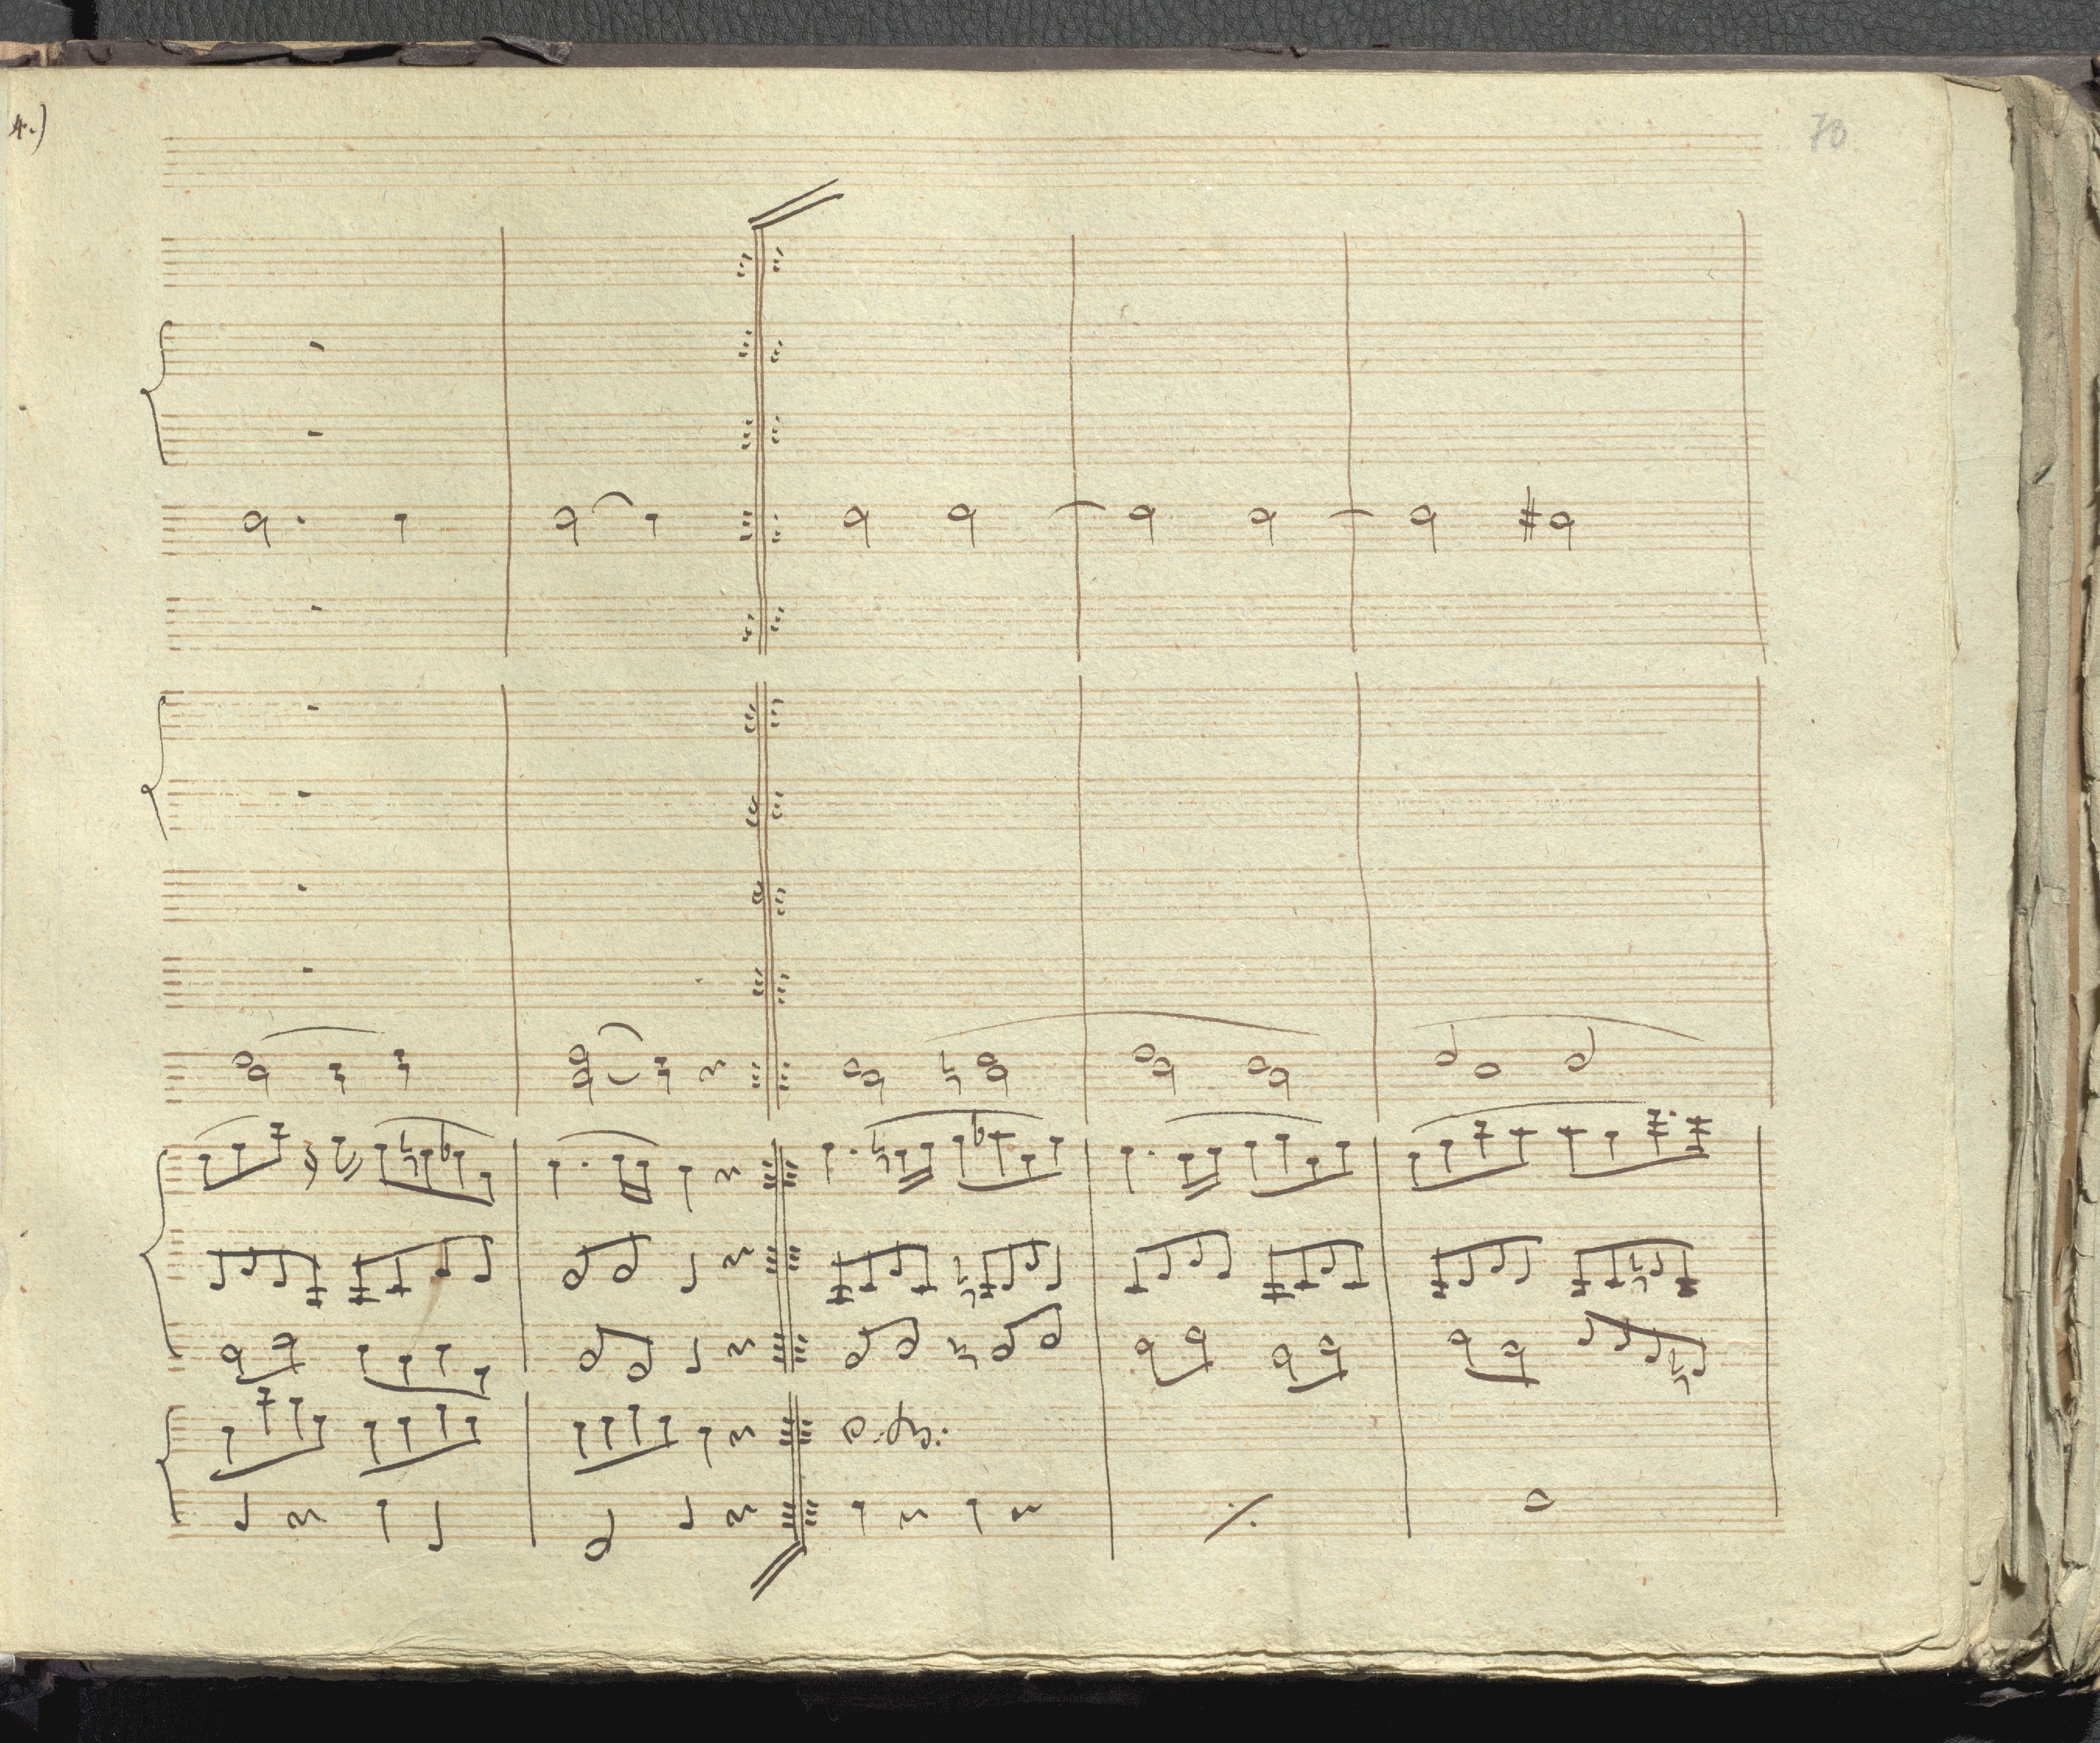 4.)
70.